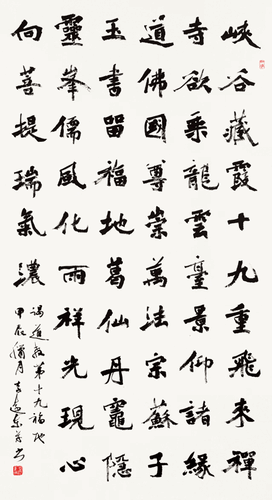 峽谷藏霞十九重飛來禪
寺欲乘龍雲臺景仰諸緣
道佛國尊崇萬法宗蘇子
玉書留福地葛仙丹竈隱
靈峯儒風化雨祥光現心
向菩提瑞氣濃
謁道教第十九福地
甲辰臘月